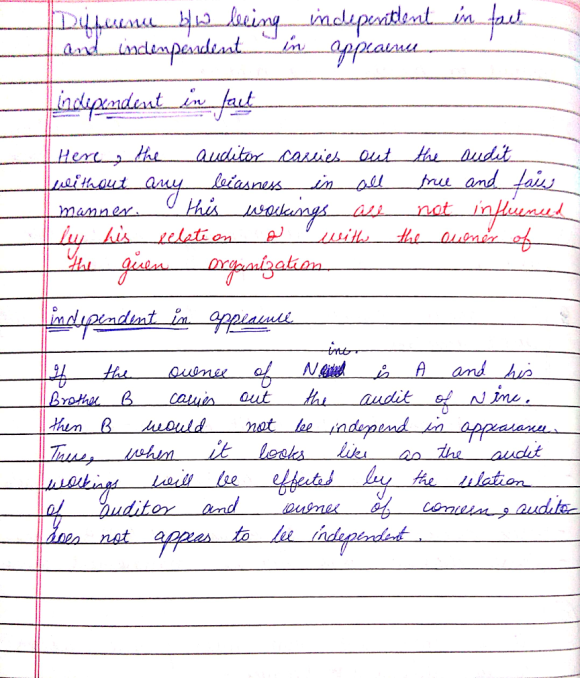 Difference b/w being independent in fact
and indenpendent in appearnce.
independent in fact
Here, the auditor carries out the audit
without any biasness in all true and fair
manner. This workings are not influenced
by his relation with the owner of
the given organization.
independent in appearnce
If the owner of N inc. is A and his
Brother B carries out the audit of N inc.
then B would not be independ in appearance.
Thus, when it looks like as the audit
workings will be effected by the relation
of auditor and owner of concern, auditor
does not appear to be independent.